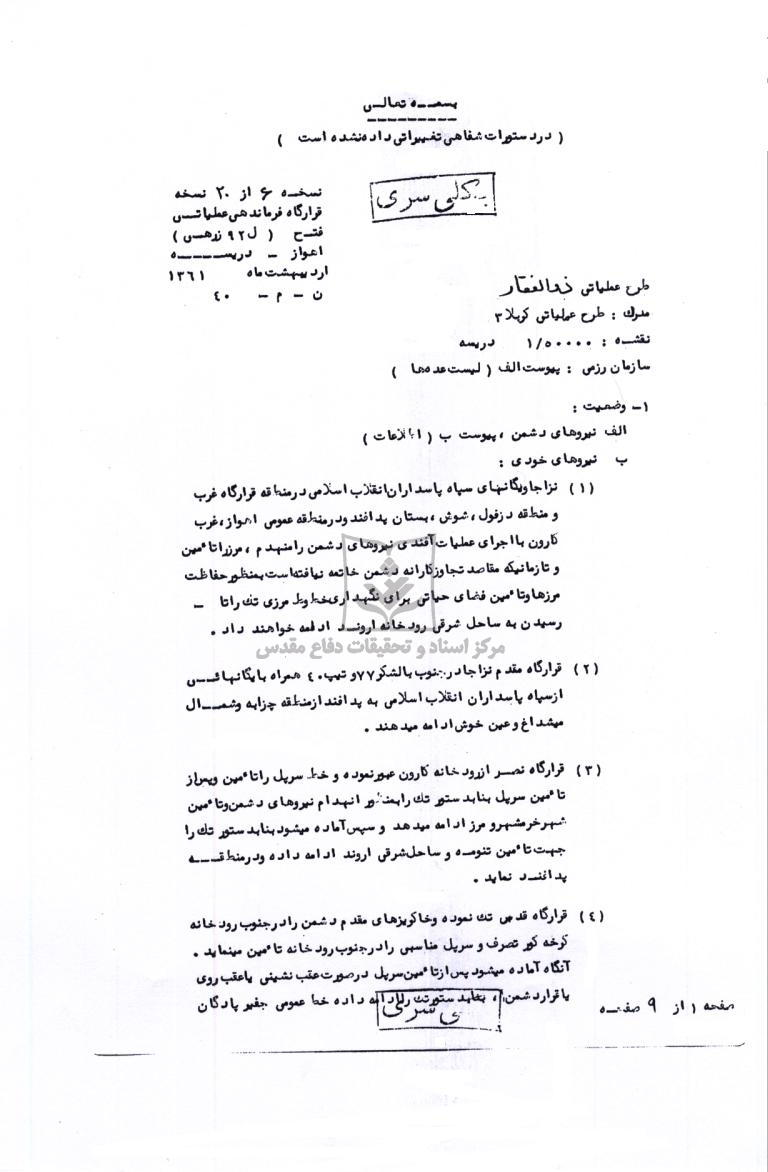 بسمه تعالی
( در دستورات شفاهی تغییراتی داده نشده است )
بکلی سری
نسخه ۶ از ۲۰ نسخه
قرارگاه فرماندهی عملیاتی
فتح ( ل ۹۲ زرهی )
اهواز - دریسه
اردیبهشت ماه ۱۳۶۱
ن - م - ۴۰
طرح عملیاتی ذوالفقار
مدرک : طرح عملیاتی کربلا ۳
نقشه : ۱/۵۰۰۰۰ دریسه
سازمان رزمی : پیوست الف ( لیست عده‌ها )
۱- وضعیت :
الف نیروهای دشمن ، پیوست ب ( اطلاعات )
ب نیروهای خودی :
(۱) نزاجا ویگانهای سپاه پاسداران انقلاب اسلامی در منطقه قرارگاه غرب
و منطقه دزفول ، شوش ، بستان پدافند ودر منطقه عمومی اهواز ، غرب
کارون با اجرای عملیات آفندی نیروهای دشمن را منهدم ، مرز را تامین
و تا زمانیکه مقاصد تجاوزکارانه دشمن خاتمه نیافته است بمنظور حفاظت
مرزها وتامین فضای حیاتی برای نگهداری خطوط مرزی تک را تا -
رسیدن به ساحل شرقی رودخانه اروند ادامه خواهند داد .
مرکز اسناد و تحقیقات دفاع مقدس
(۲) قرارگاه مقدم نزاجا در جنوب با لشکر ۷۷ و تیپ ۴۰ همراه با یگانهائی
از سپاه پاسداران انقلاب اسلامی به پدافند از منطقه چزابه وشمال
میشداغ و عین خوش ادامه میدهند .
(۳) قرارگاه نصر از رودخانه کارون عبور نموده و خط سرپل را تامین وپس از
تامین سرپل بنابدستور تک را بمنظور انهدام نیروهای دشمن وتامین
شهر خرمشهر و مرز ادامه میدهد و سپس آماده میشود بنابدستور تک را
جهت تامین تنومه و ساحل شرقی اروند ادامه داده ودر منطقه
پدافند نماید .
(۴) قرارگاه قدس تک نموده وخاکریزهای مقدم دشمن را در جنوب رودخانه
کرخه کور تصرف و سرپل مناسبی را در جنوب رودخانه تامین مینماید .
آنگاه آماده میشود پس از تامین سرپل در صورت عقب نشینی یا عقب روی
یا فرار دشمن ، بنابدستور تک را ادامه داده خط عمومی جفیر پادگان
سری
صفحه ۱ از ۹ صفحه